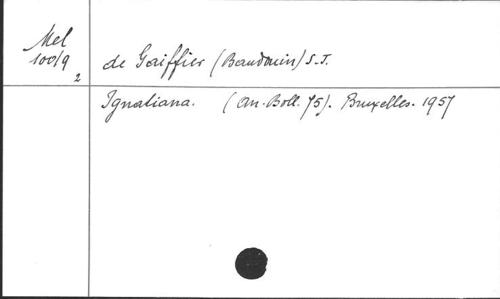 Mel
100/9
2
de Gaiffier (Baudouin) S.J.
Ignatiana. (An. Boll. 75). Bruxelles. 1957